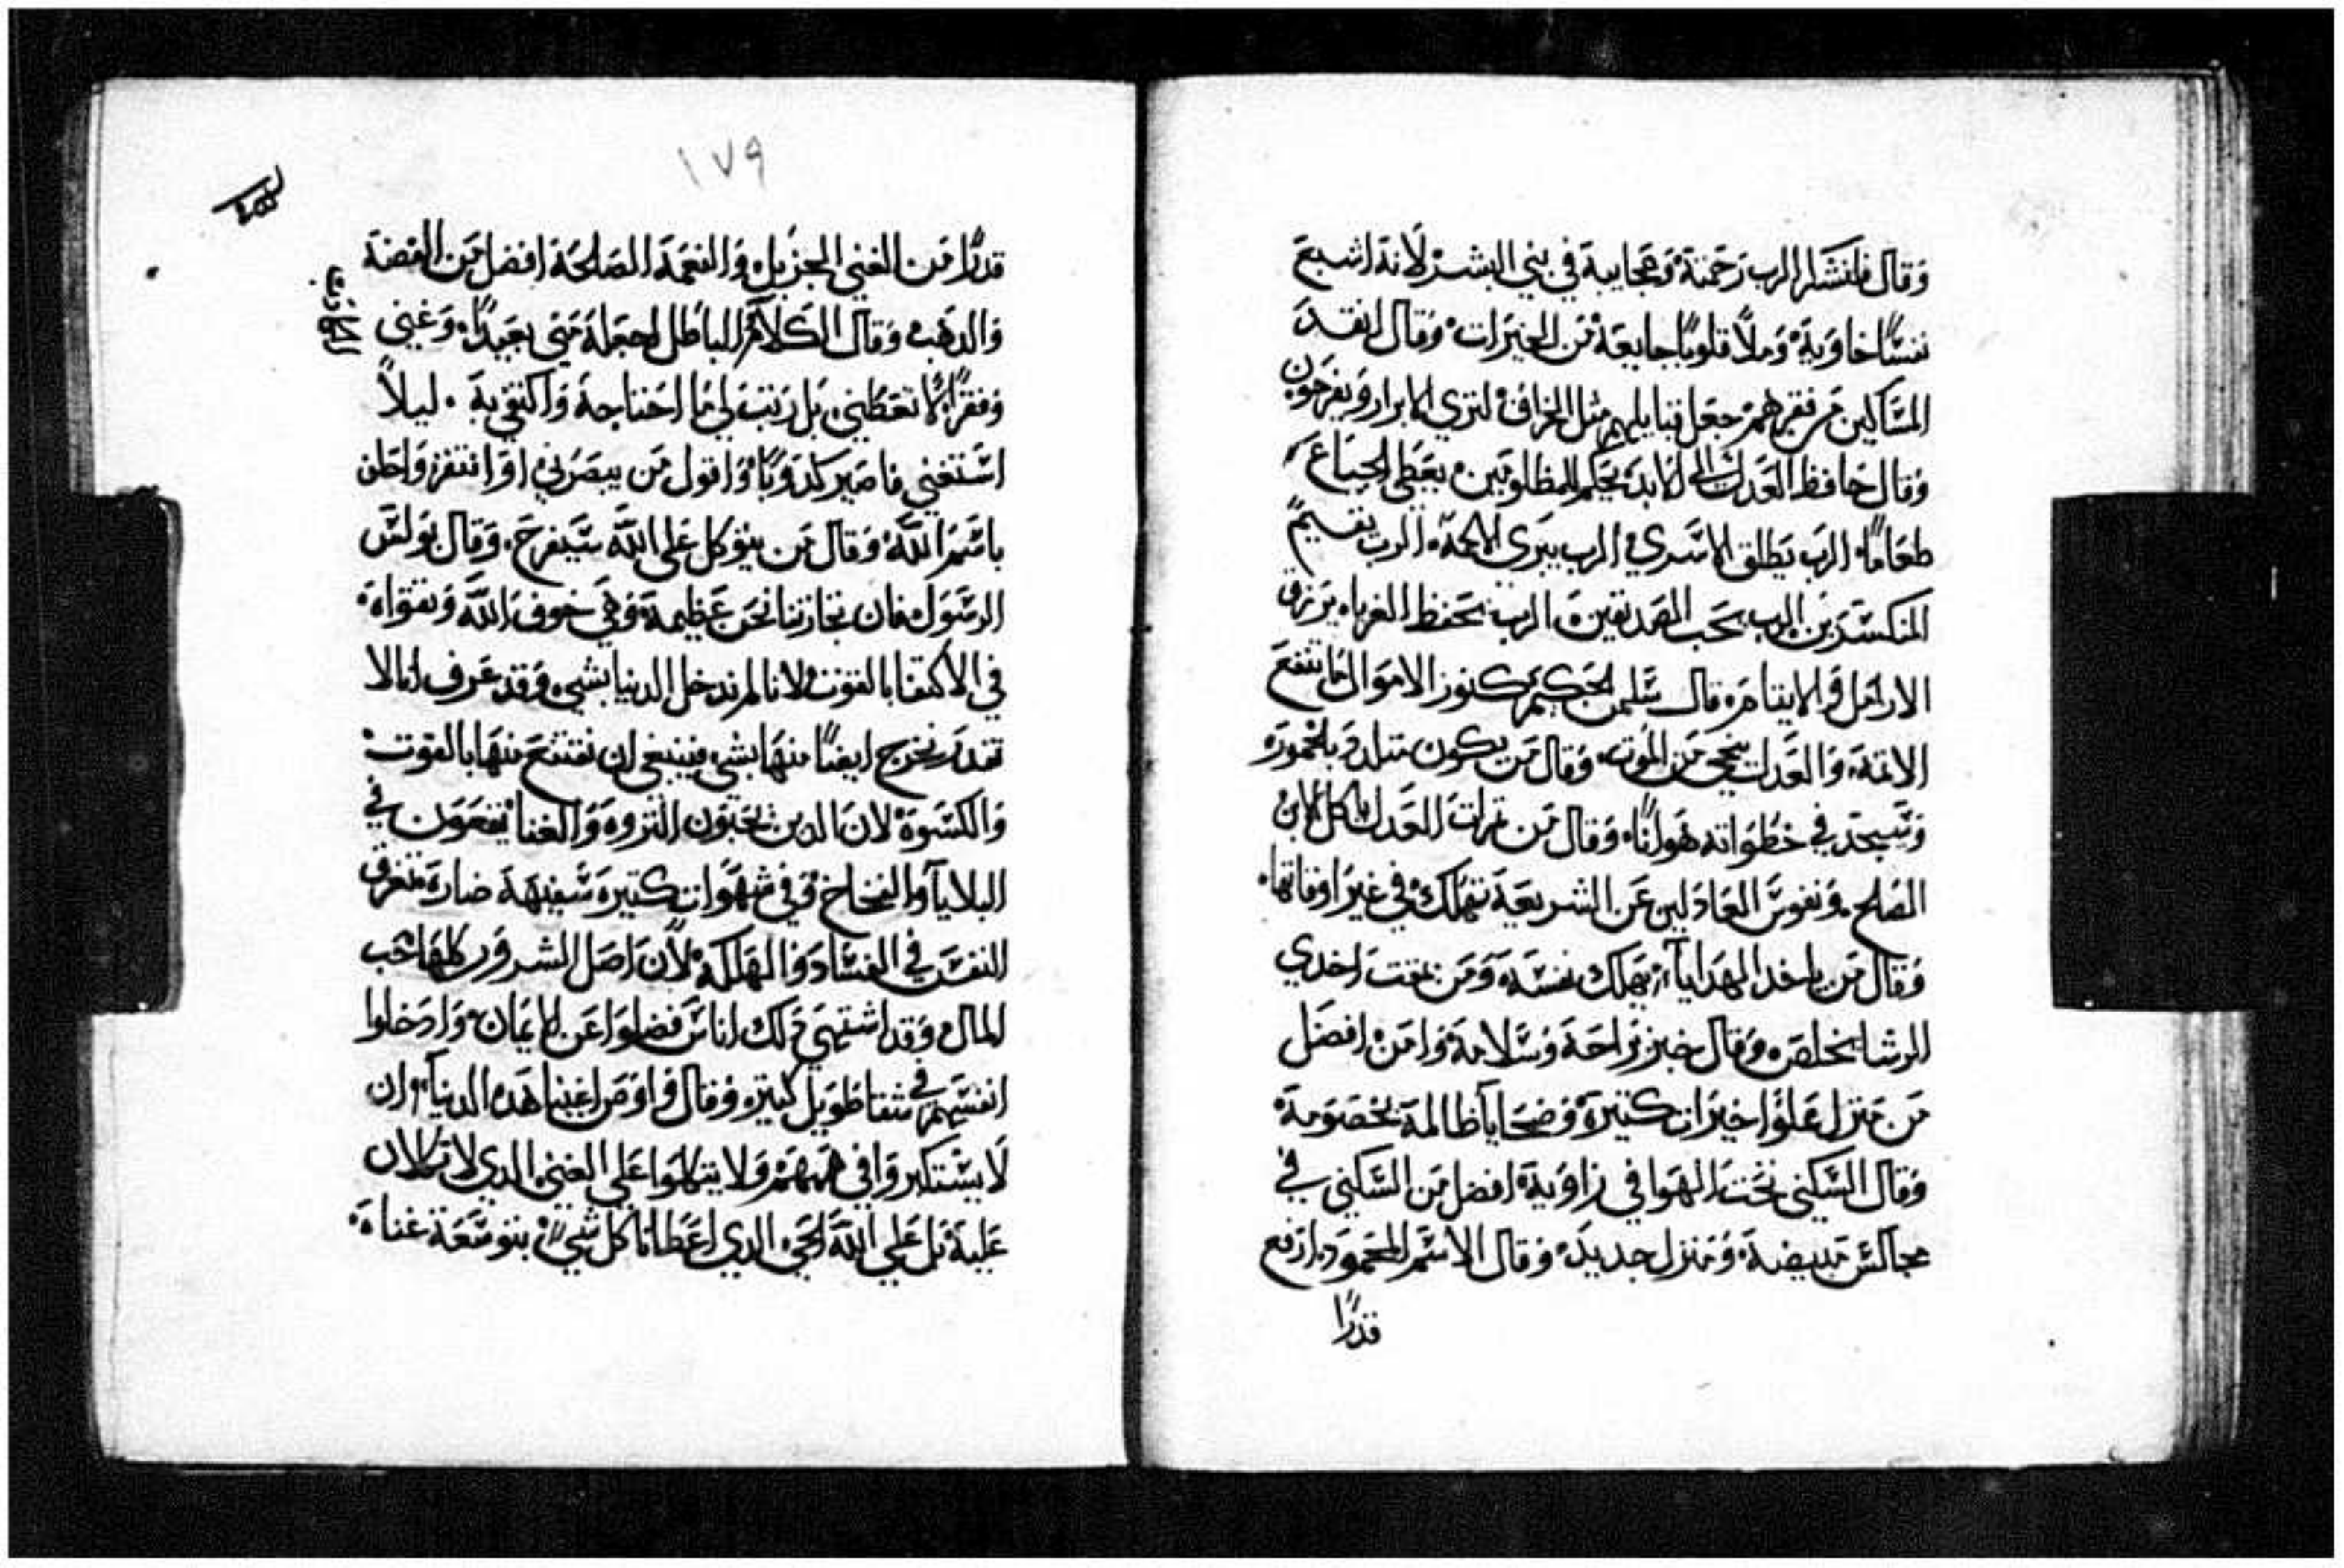 وقال فلنشكر الرب رحمتة وعجايبة في بني البشر لانة اشبع
نفسًا خاوية وملا قلوبًا جايعة من الخيرات وقال انقد
المساكين من فقرهم جعل قبايلهم مثل الخراف لتري الابرار ويفرحون
وقال حافظ العدل الى الابد يحكم للمظلومين يعطي الجياع
طعامًا الرب يطلق الاسري الرب يبرى الرب يقيم
المنكسرين الرب يحب الصديقين الرب يحفظ الغرباه يرزق
الارامل والايتام قال سليمن الحكيم كنوز الاموال ما تنفع
الاتمة والعدل ينجي من الموت وقال من يكون متلدد بالخمور
وسيجد في خطواته هولنًا وقال من تمرات العدل ياكل الابن
الصلح ونفوس العادلين عن الشريعة تهلك في غير اوقاتها
وقال من ياخد الهدايا يهلك نفسة ومن يمقت اخدي
الرشا يخلص وقال خبز راحة وسلامة وامن افضل
من منزل مملوا خيرات كتيرة وضحايا ظالمة بخصومة
وقال السكني تحت الهوا في زاوية افضل من السكني في
مجالس مبيضة ومنزل جديد وقال الاسم المحمود ارفع
قدرًا
١٧٩
قدرًا من الغني الجزيل والنعمة الصالحة افضل من الفضة
والدهب وقال الكلام الباطل اجعلة مني بعيدًا وغني
وفقرًا لا تعطيني بل رتب لي ما احتاجة واكتفي بة ليلا
استغني فاصير كدوبًا واقول من يبصرني او افتقر واحلف
باسم الله وقال من يتوكل على الله سيفرح وقال بولس
الرسول فان تجارتنا نحن عظيمة وهي خوف الله وتقواه
في الاكتفا بالقوت لانا لم ندخل الدنيا بشي وقد عرف انا لا
نقدر نخرج ايضًا منها بشي فينبغي ان نقتنع منها بالقوت
والكسوة لان الدين يحبون التروه والغنا يقعون في
البلايا والفخاخ وفي شهوات كتيرة سفيهة ضارة تغرق
النفس في الفساد والهلكة لان اصل الشرور كلها حب
المال وقد اشتهي دلك اناس فضلوا عن الايمان وادخلوا
انفسهم في شقا طويل كتير وقال واوص اغنيا هده الدنيا ان
لا يستكبروا في هممهم ولا يتكلوا على الغني الدي لا تكلان
علية بل علي الله الحي الدي اعطانا كل شي بتوسعة غناه